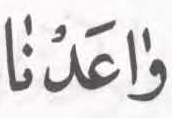 وٰاعَدْنٰا